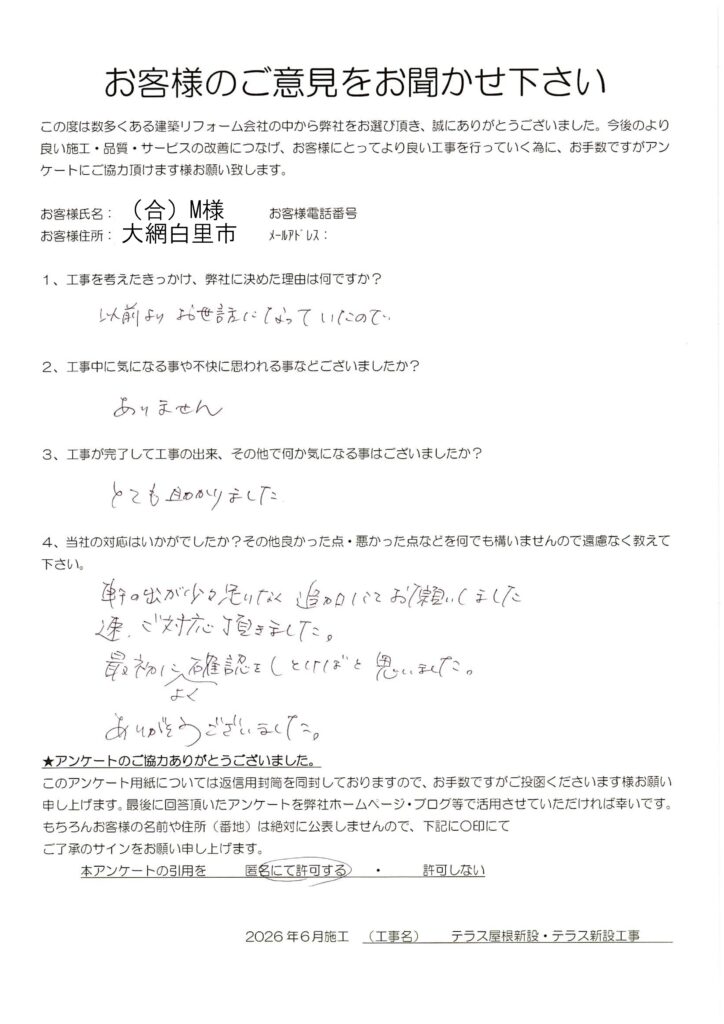 お客様のご意見をお聞かせ下さい
この度は数多くある建築リフォーム会社の中から弊社をお選び頂き、誠にありがとうございました。今後のより
良い施工・品質・サービスの改善につなげ、お客様にとってより良い工事を行っていく為に、お手数ですがアン
ケートにご協力頂けます様お願い致します。
お客様氏名：（合）M様 お客様電話番号
お客様住所：大網白里市 ﾒｰﾙｱﾄﾞﾚｽ：
1、工事を考えたきっかけ、弊社に決めた理由は何ですか？
以前より お世話になっていたので、
2、工事中に気になる事や不快に思われる事などございましたか？
ありません
3、工事が完了して工事の出来、その他で何か気になる事はございましたか？
とても助かりました
4、当社の対応はいかがでしたか？その他良かった点・悪かった点などを何でも構いませんので遠慮なく教えて
下さい。
軒の出が少々足りなく 追加にてお願いしました
速、ご対応頂きました。
最初に確認をしとけばと思いました。
よく
ありがとうございました。
★アンケートのご協力ありがとうございました。
このアンケート用紙については返信用封筒を同封しておりますので、お手数ですがご投函くださいます様お願い
申し上げます。最後に回答頂いたアンケートを弊社ホームページ・ブログ等で活用させていただければ幸いです。
もちろんお客様の名前や住所（番地）は絶対に公表しませんので、下記に〇印にて
ご了承のサインをお願い申し上げます。
本アンケートの引用を 匿名にて許可する ・ 許可しない
2026年6月施工 （工事名） テラス屋根新設・テラス新設工事